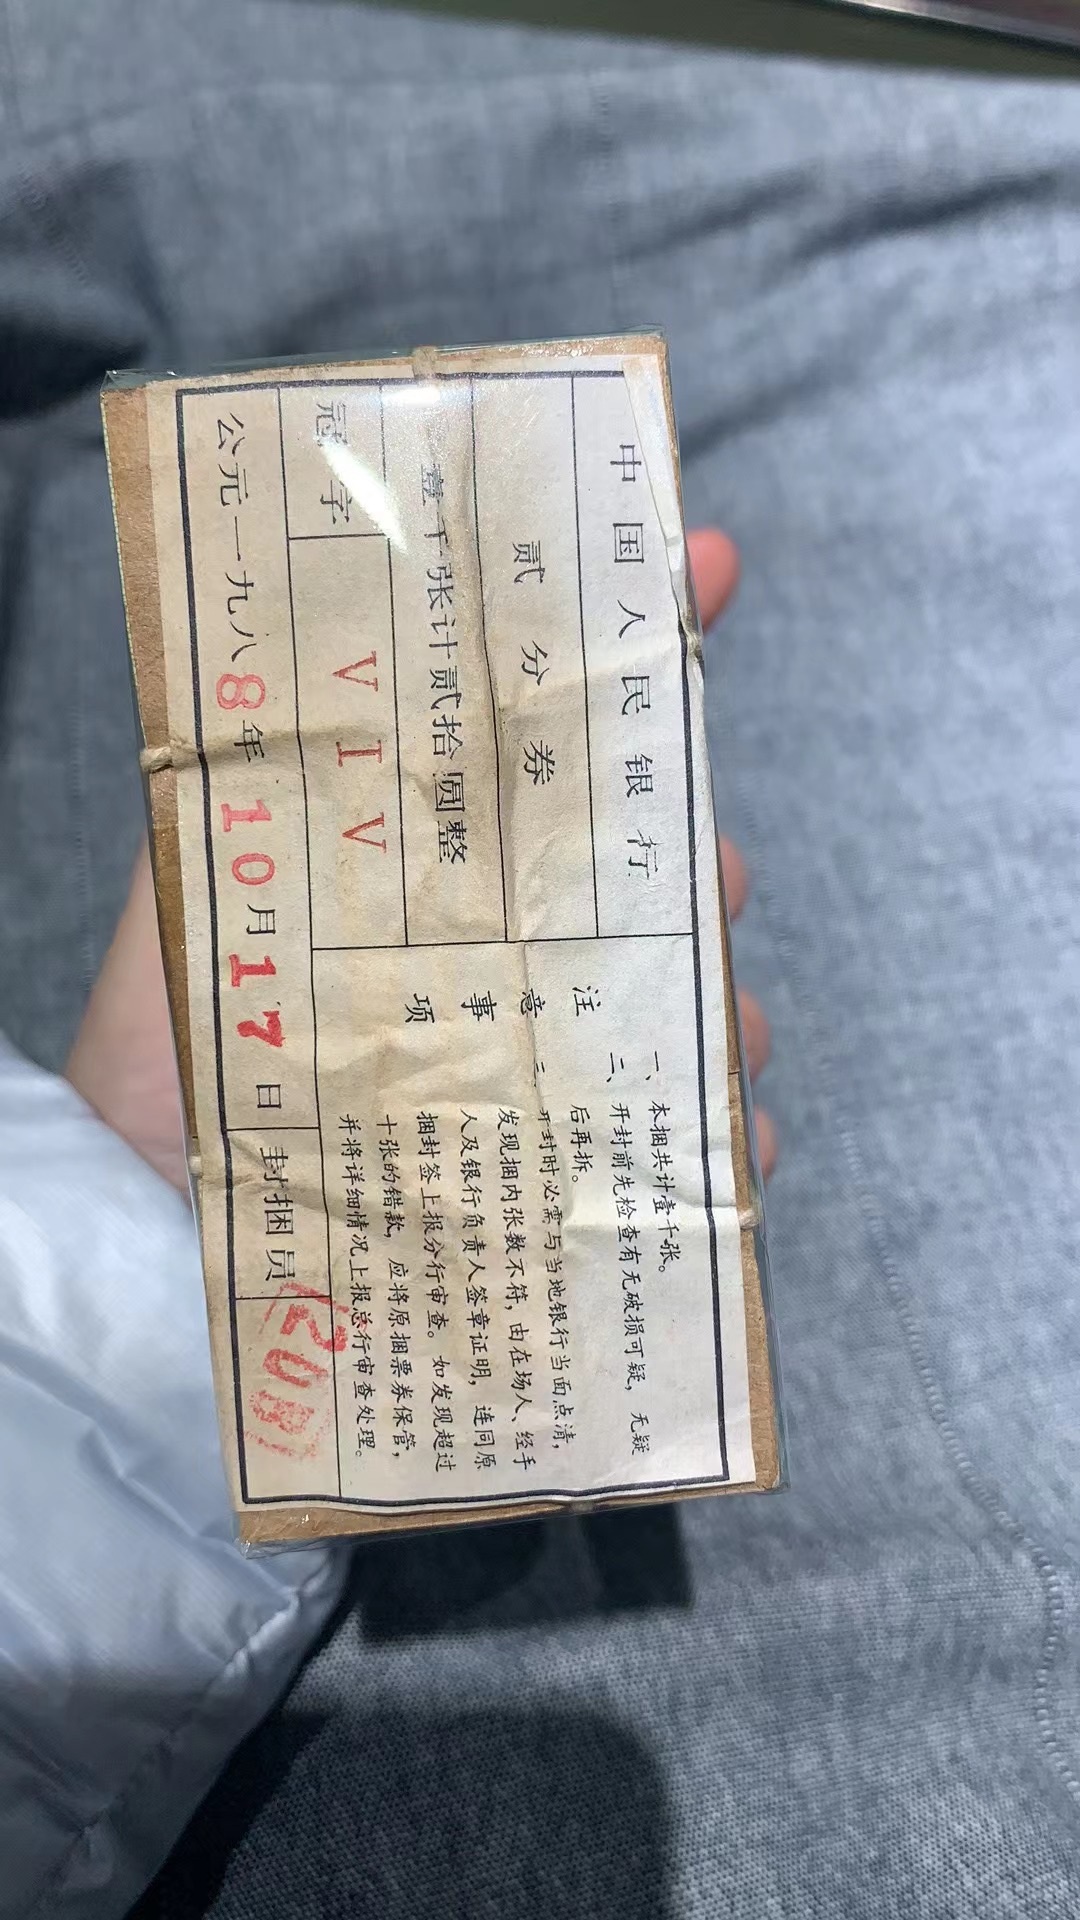 中国人民银行
贰分券
壹千张计贰拾圆整
冠字 VIV
公元一九八8年10月17日 封捆员
注意事项
一、本捆共计壹千张。
二、开封前先检查有无破损可疑，无疑
后再拆。
三、开封时必需与当地银行当面点清，
发现捆内张数不符，由在场人、经手
人及银行负责人签章证明，连同原
捆封签上报分行审查。如发现超过
十张的错款，应将原捆票券保管，
并将详细情况上报总行审查处理。